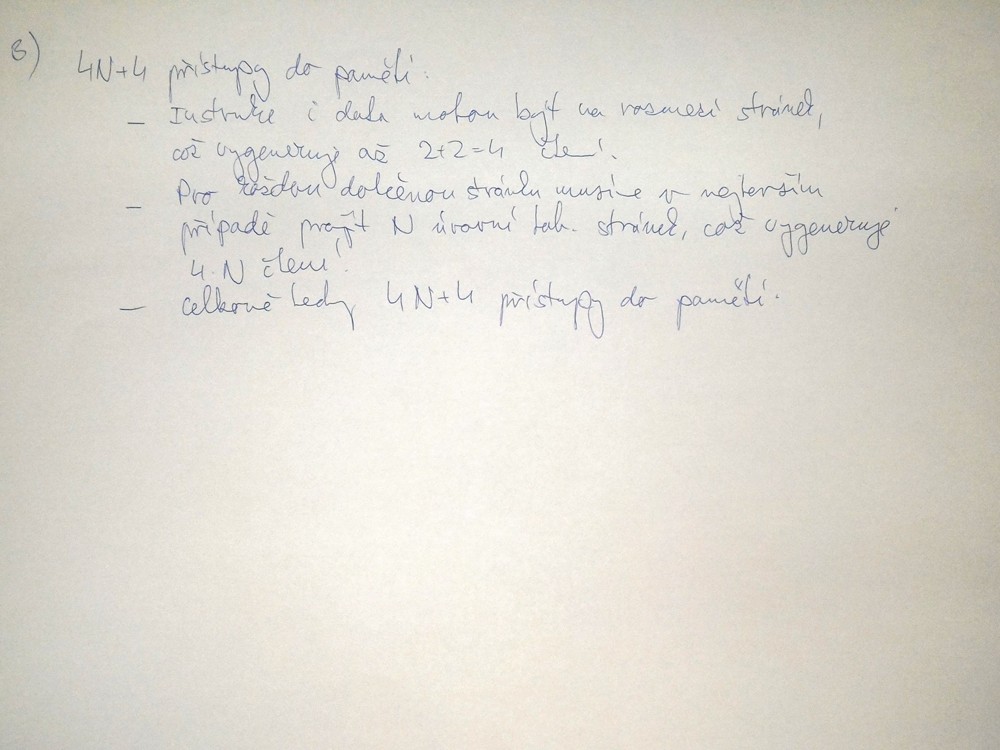 3) 4N+4 přístupy do paměti:
– Instrukce i data mohou být na rozmezí stránek,
což vygeneruje až 2+2=4 čtení.
– Pro každou dotčenou stránku musíme v nejhorším
případě projít N úrovní tab. stránek, což vygeneruje
4·N čtení.
– celkově tedy 4N+4 přístupy do paměti.